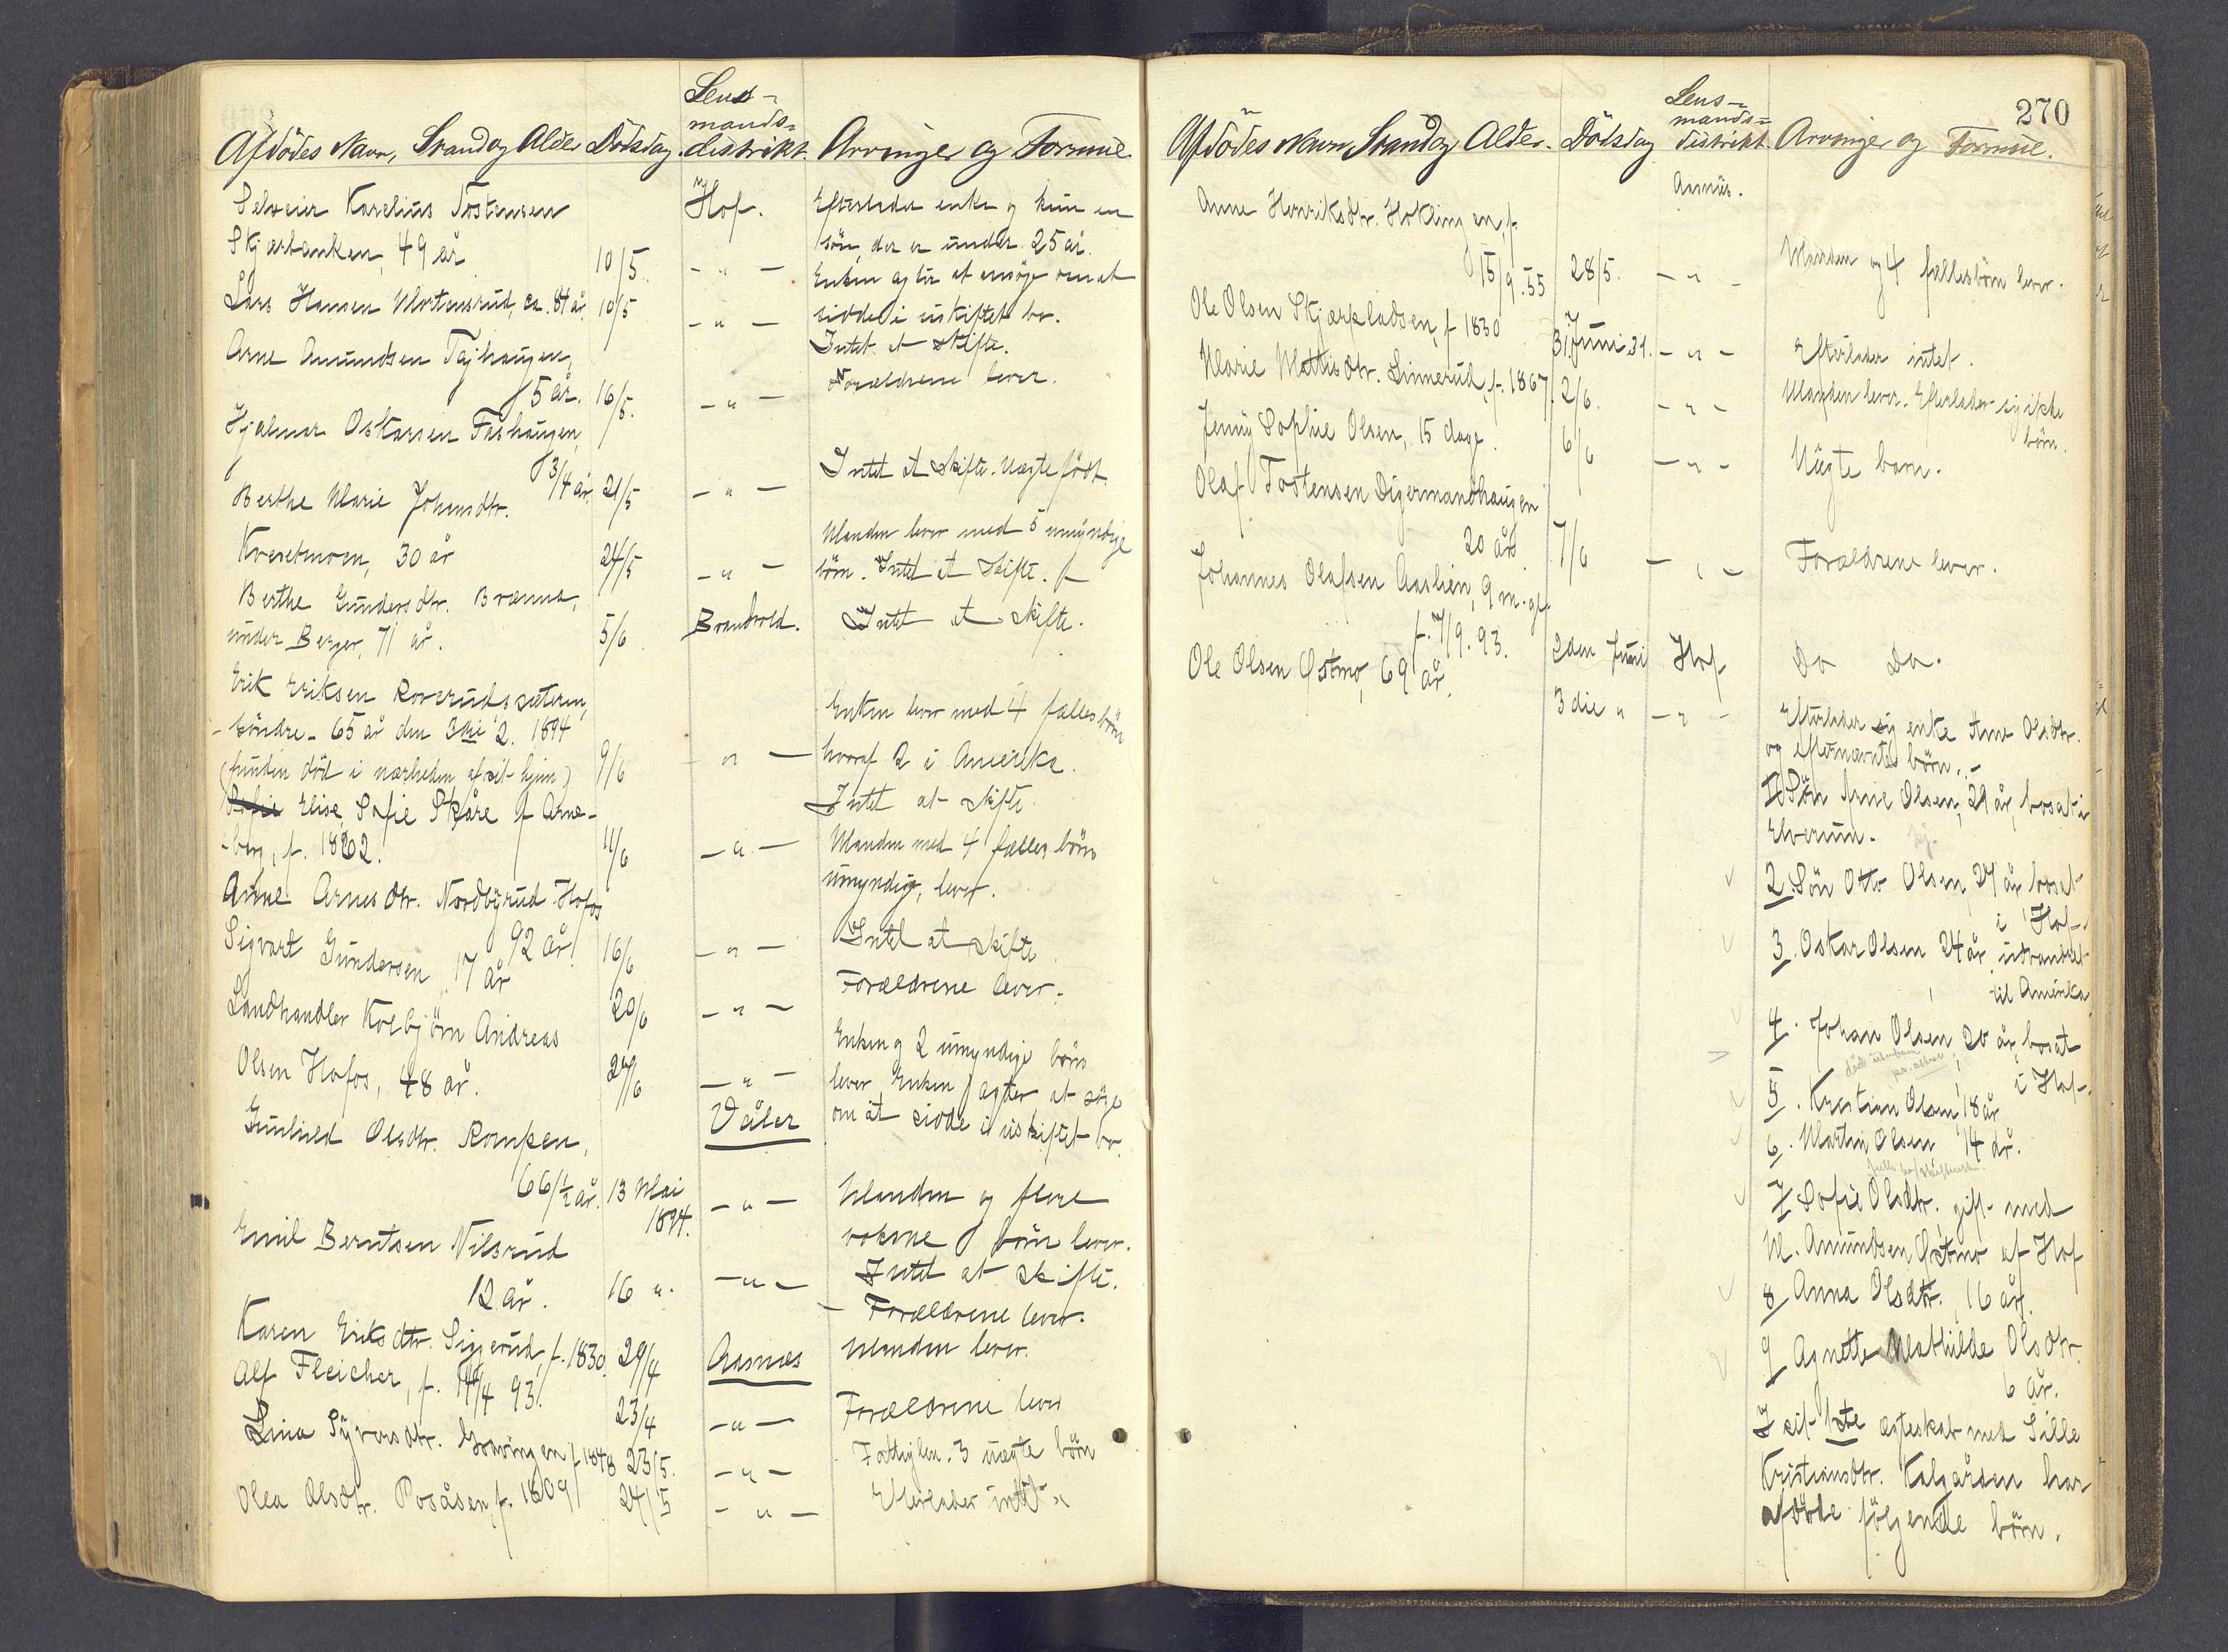 Lens-
mands-
Afdödes Navn, Stand og Alder Dödsdag distrikt. Arvinger og Formue.
Selveier Karelius Tostensen Hof. Efterlader enke og kun en
Skjærbenken, 49 år 10/5 - " - sön, der er under 25 år.
Enken agter at ansöge om at
Lars Hansen Mortensrud, ca. 84 år 10/5 - " - sidde i uskiftet bo.
Intet at skifte.
Arne Amundsen Tajhaugen,
5 år. 16/5. - " - Forældrene lever.
Hjalmar Oskarsen Fashaugen,
3/4 år 21/5 - " - Intet at skifte. Uægte födt.
Berthe Marie Johansdtr.
Kvesetmoen, 30 år 24/5 - " - Manden lever med 5 umyndige
börn. Intet at skifte.
Berthe Gundersdtr. Brænna,
under Berger, 71 år. 5/6 Brandvold. Intet at skifte.
Erik Eriksen Roverudssæteren,
söndre - 65 år den 3die 2. 1894 Enken lever med 4 fælles börn
(funden död i nærheden af sit hjem) 9/6 - " - hvoraf 2 i Amerika.
Intet at skifte.
Elise Sofie Skåre af Arne-
berg, f. 1862. 11/6 - " - Manden med 4 fælles börn
umyndige, lever.
Anne Arnesdtr. Nordbyrud Hofos
92 år 16/6 - " - Intet at skifte
Sigvart Gundersen 17 år 20/6 - " - Forældrene lever.
Landhandler Kolbjörn Andreas
Olsen Hofos, 48 år. 24/6 - " - Enken og 2 umyndige börn
lever. Enken agter at söge
Våler om at sidde i uskiftet bo.
Gunhild Olsdtr. Rompen,
66 1/2 år. 13 Mai 1894. - " - Manden og flere
voksne börn lever.
Intet at skifte.
Emil Berntsen Nilsrud
12 år. 16 ". - " - - Forældrene lever.
Karen Eriksdtr. Sigerud, f. 1830. 29/4 Aasnes Manden lever.
Alf Fleicher, f. 14/4 93. 23/4 - " - Forældrene lever
Lina Syversdtr. f. 1848 23/5. - " - Fattiglem. 3 uægte börn
Olea Olsdtr. Posåsen f. 1809 24/5 - " - Efterlader intet
270
Lens-
mands-
Afdödes Navn, Stand og Alder. Dödsdag distrikt. Arvinger og Formue.
Aasnæs.
Anne Henriksdtr. f.
15/9.55 28/5. - " - Manden og 4 fællesbörn lever.
Ole Olsen Skjærpladsen, f 1830 31. - " - Efterlader intet.
Marie Mattisdtr. Linnerud, f. 1867. 2/6. - " - Manden lever. Efterlader sig ikke
börn.
Jenny Sophie Olsen, 15 dage. 6/6 - " - Uægte barn.
Olaf Tostensen Digermandhaugen
20 år 7/6 - " - Forældrene lever.
Johannes Olafsen Aaslien, 9 m. gl.
f. 7/9.93. 2den Juni Hof Do Do.
Ole Olsen Østmo, 69 år. 3die " - " - Efterlader sig enke Ane Olsdtr.
og efternævnte börn:-
1 Sön Arne Olsen, 29 år, bosat i
Elverum.
2. Sön Otto Olsen, 27 år bosat
i Hof.
3. Oskar Olsen 24 år udvandret
til Amerika
4. Johan Olsen, 20 år, bosat
i Hof.
5. Kristian Olsen, 18 år
6. Martin Olsen 14 år.
7 Sofie Olsdtr. gift med
M. Amundsen Østmo af Hof
8 Anna Olsdtr. 16 år.
9 Agnette Mathilde Olsdtr.
6 år.
I sit 1ste ægteskab med Sille
Kristiansdtr. Kalgården har
afdöde fölgende börn.